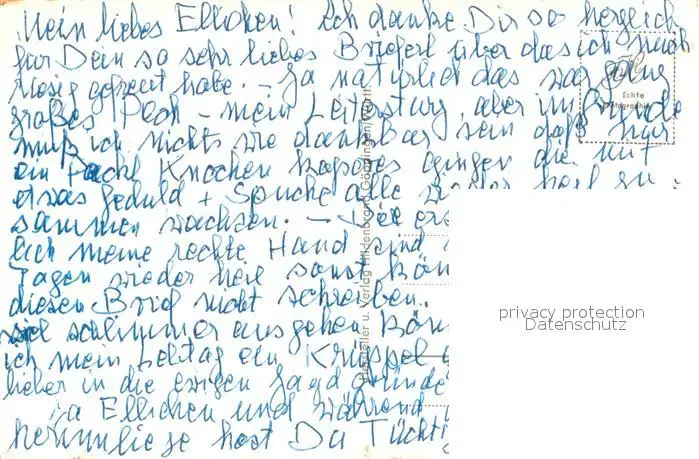 Mein liebes Ellichen! Ich danke Dir so herzlich
für Dein so sehr liebes Brieferl über das ich mich
riesig gefreut habe. – Ja natürlich das war ganz
großes Pech – mein Leitersturz, aber im Grunde
muß ich nichts wie dankbar sein daß nur
ein Knochen kapores gingen die mit
etwas Geduld + Spucke alle wieder heil zu-
sammen wachsen. – Die
lich meine rechte Hand sind
Tagen wieder heil sonst kön
diesen Brief nicht schreiben.
viel schlimmer ausgehen kön
ich mein Lebtag ein Krüppel
lieber in die ewigen Jagdgründe
Ja Ellichen und während
herumliege hast Du Tücht
Echte
Photographie
Hersteller u. Verlag Hildenbrand Göppingen/Württ.
privacy protection
Datenschutz